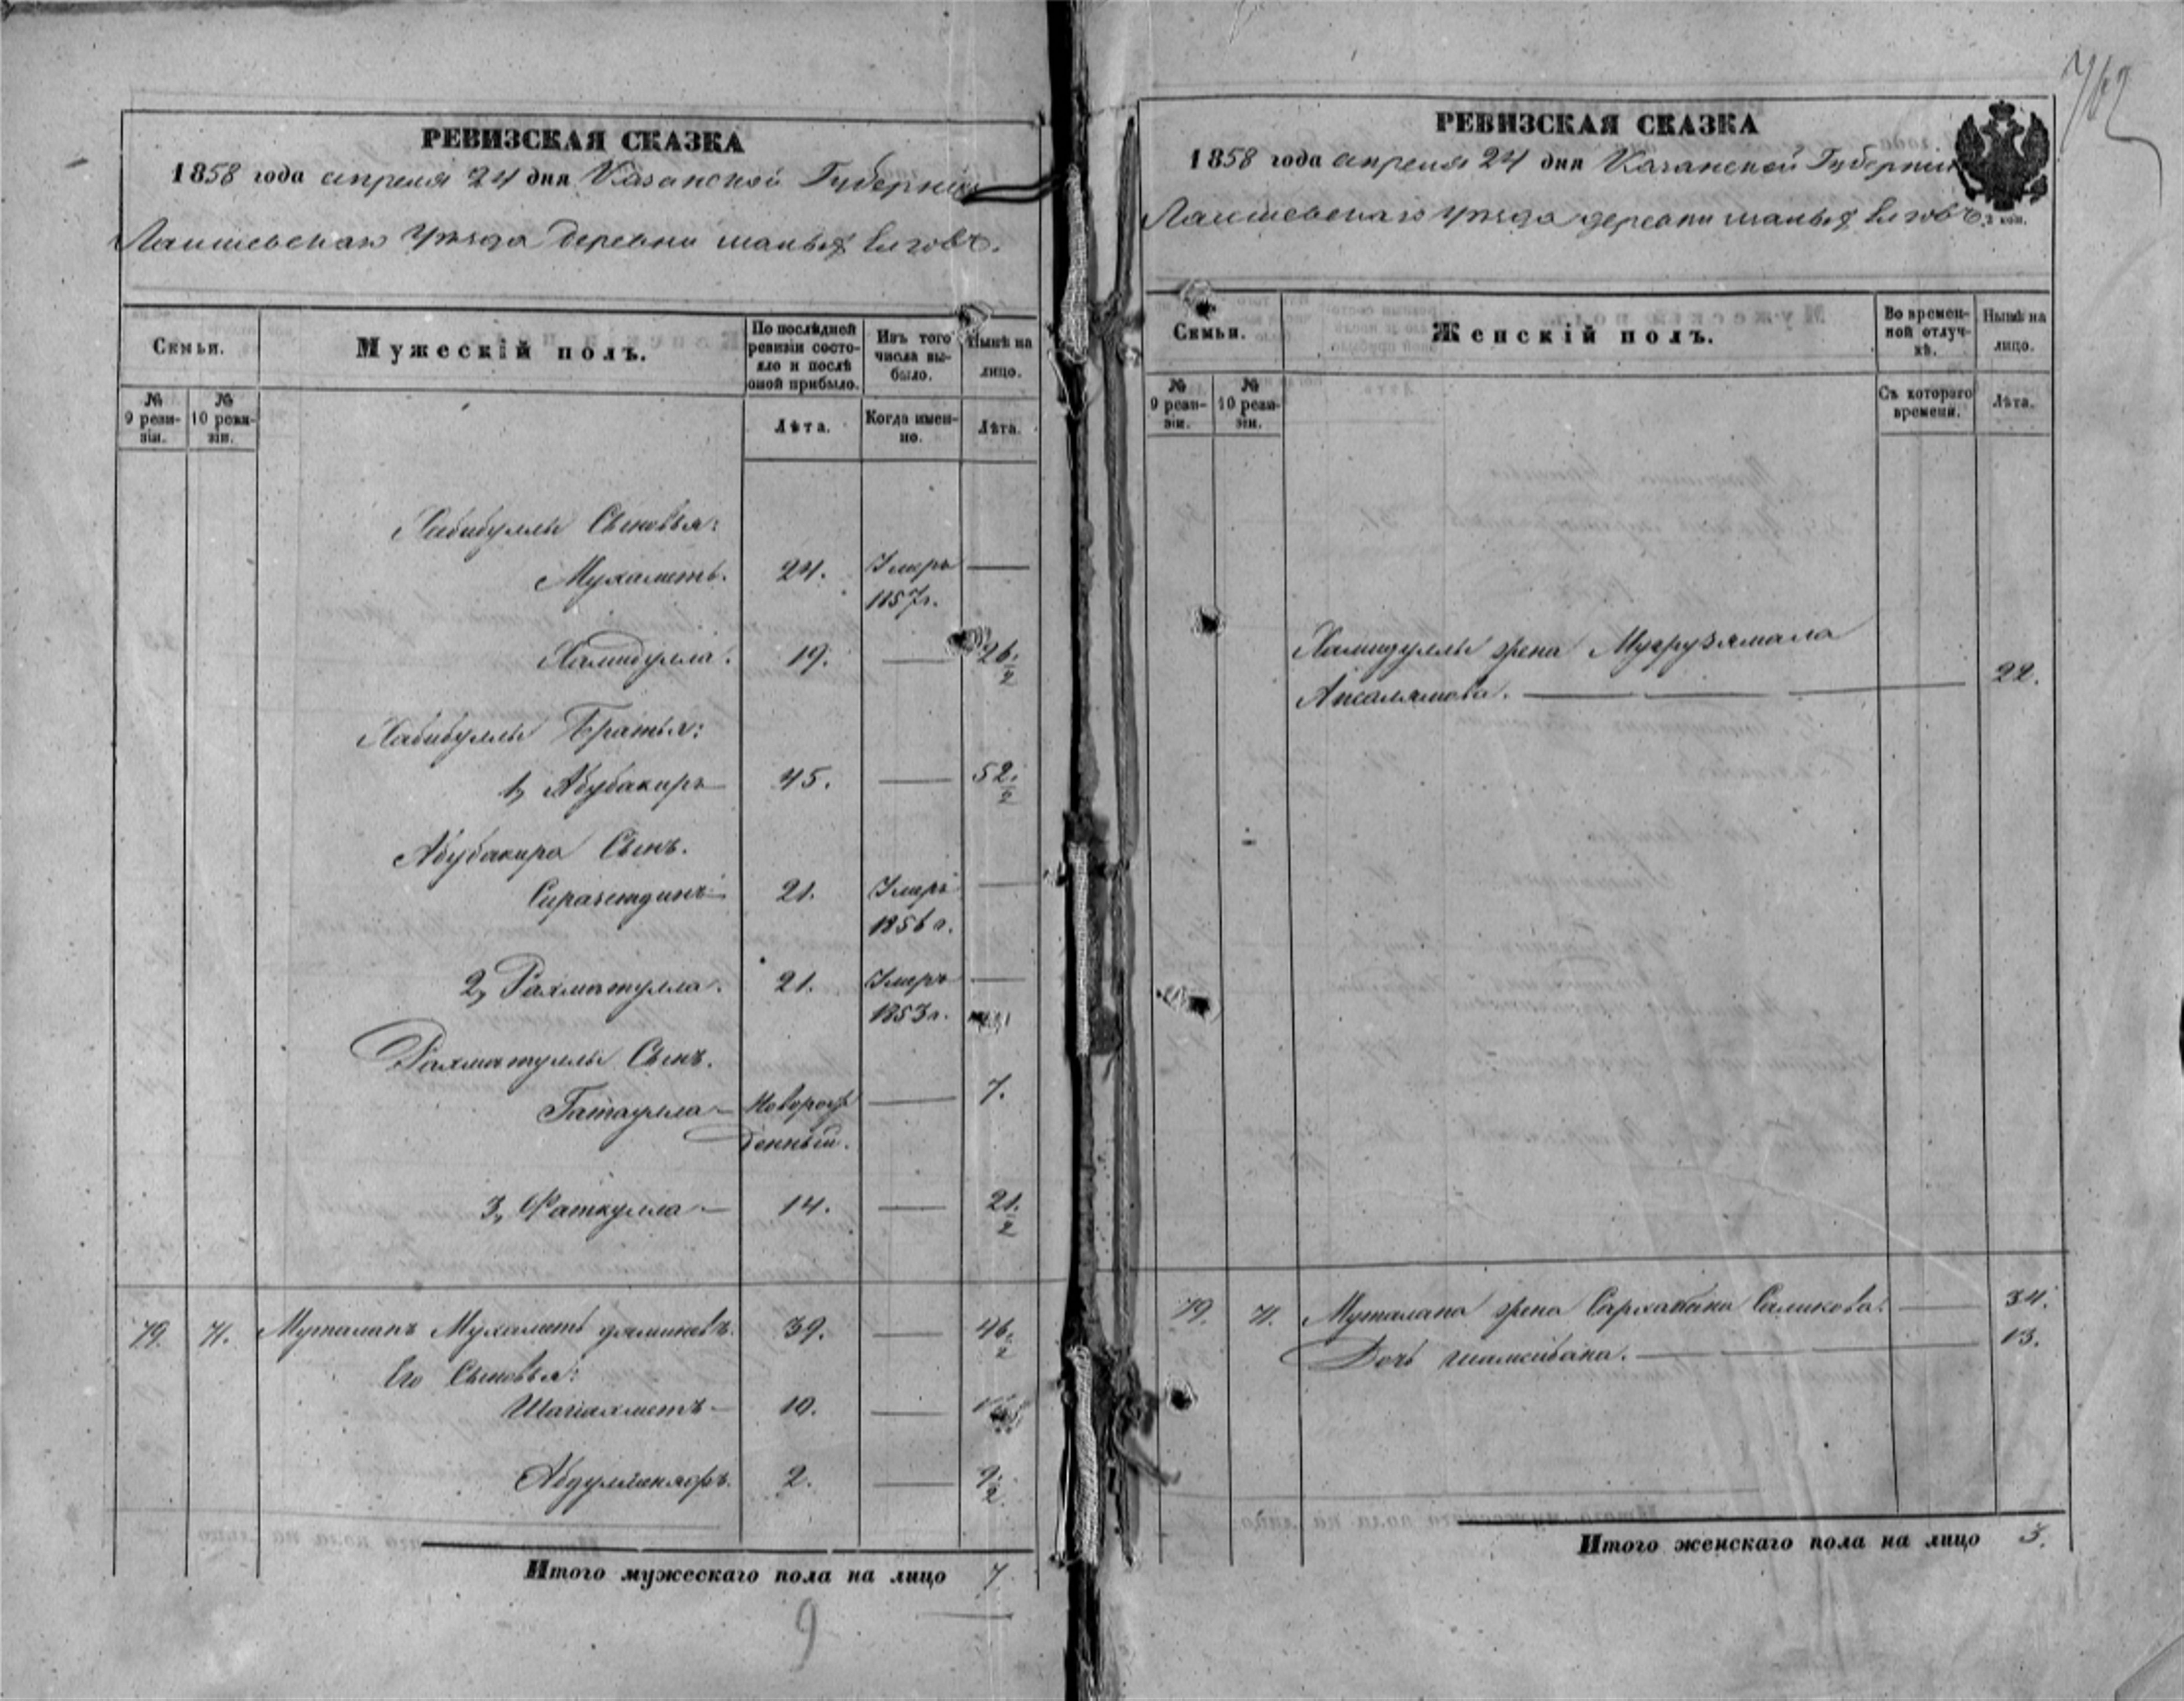 762
РЕВИЗСКАЯ СКАЗКА
1858 года апреля 24 дня Казанской Губернiи
Лаишевскаго уѣзда деревни малыхъ Елговъ.
Семьи.
Мужескій полъ.
По послѣдней ревизіи состояло и послѣ оной прибыло.
Изъ того числа выбыло.
Нынѣ на лицо.
№ 9 ревизіи.
№ 10 ревизіи.
Лѣта.
Когда именно.
Лѣта.
Хабибуллы Сыновья:
Мухаметь. 24. Умеръ 1857 г. —
Хамидулла. 19. — 26. 2
Хабибуллы Братья:
1, Абубакиръ 45. — 52. 2
Абубакира Сынъ.
Сиразетдинъ 21. Умеръ 1856 г. —
2, Рахматулла. 21. Умеръ 1853 г. —
Рахматуллы Сынъ.
Гатаулла — Новорожденный. — 7.
3, Фаткулла — 14. — 21. 2
79. 71. Муталапъ Мухаметь 39. — 46. 2
Его Сыновья:
Шагиахметъ — 10. —
2. — 9. 2
Итого мужескаго пола на лицо 7
9
РЕВИЗСКАЯ СКАЗКА
1858 года апреля 24 дня Казанской Губернiи
Лаишевскаго уѣзда деревни малыхъ Елговъ.
коп.
Семьи.
Женскій полъ.
Во временной отлучкѣ.
Нынѣ на лицо.
№ 9 ревизіи.
№ 10 ревизіи.
Съ котораго времени.
Лѣта.
Хамидуллы жена
Апсалямова. — 22.
79. 71. Муталапа жена Сархабана Саликова. — 34.
Дочь шамсибана. — 13.
Итого женскаго пола на лицо 3.